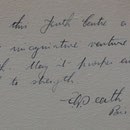 this Youth Centre a
imaginative venture
May it prosper an
to strength.